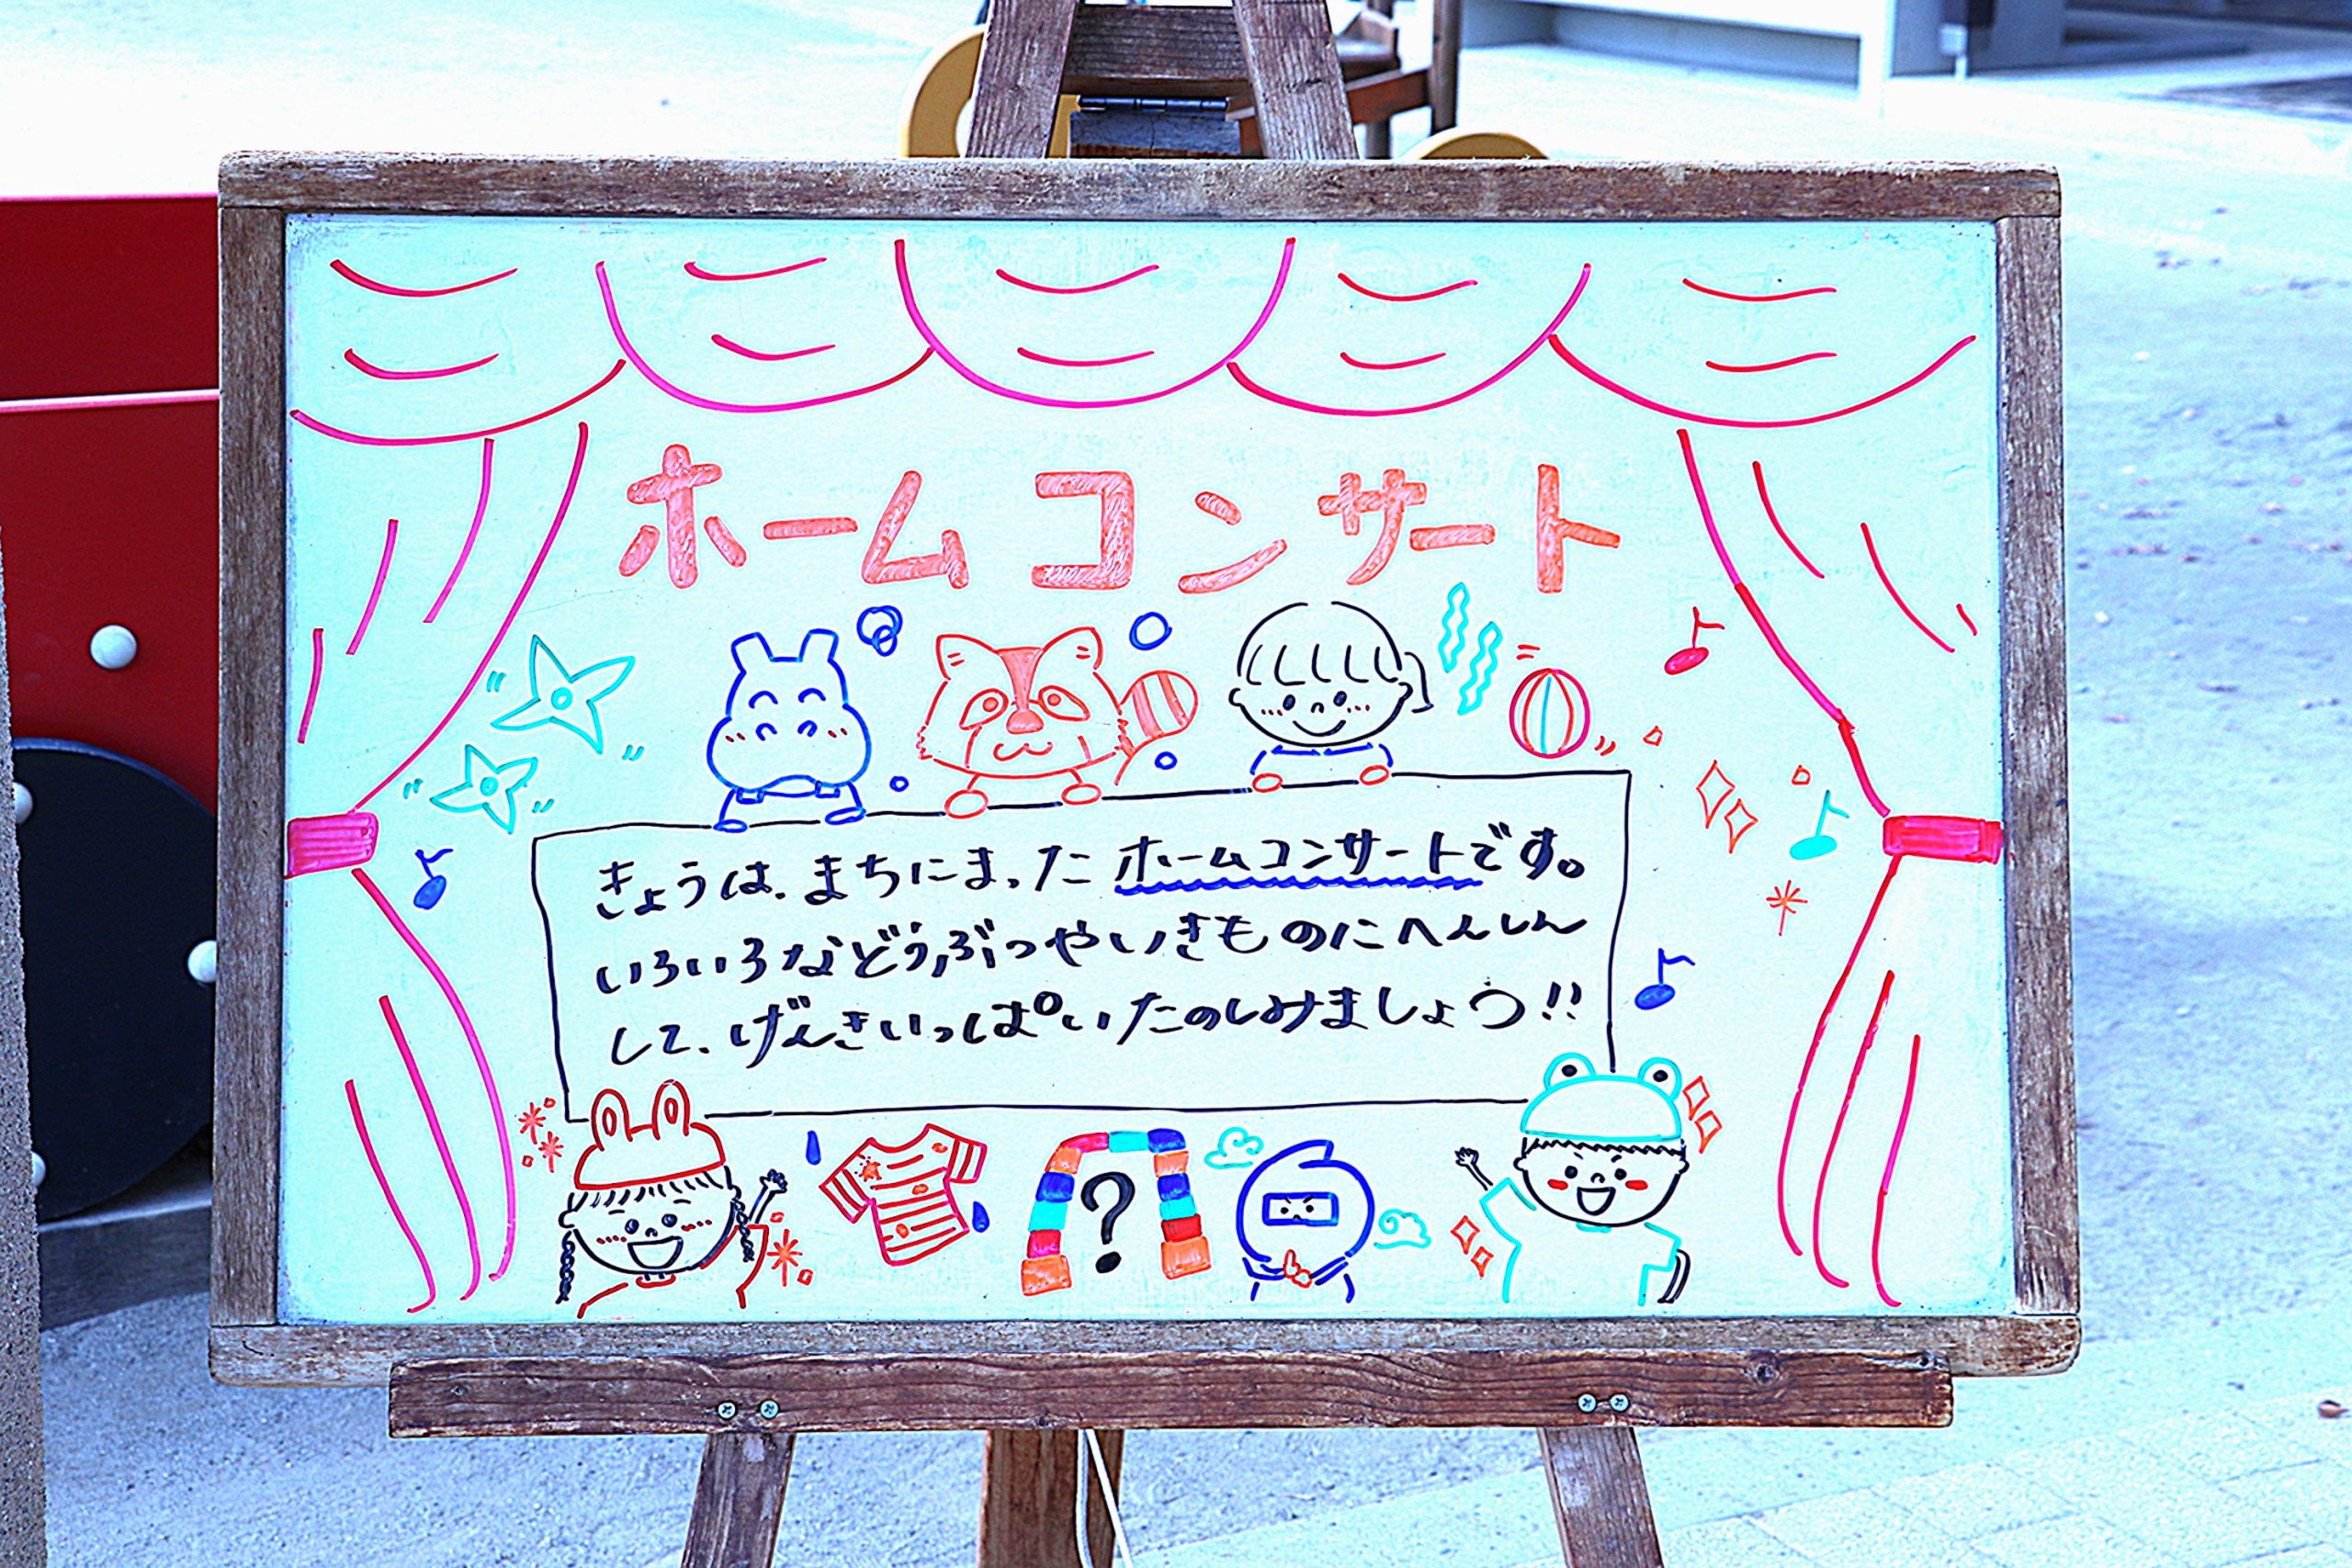 ホームコンサート
きょうは、まちにまった ホームコンサートです。
いろいろなどうぶつやいきものにへんしん
して、げんきいっぱいたのしみましょう!!
?